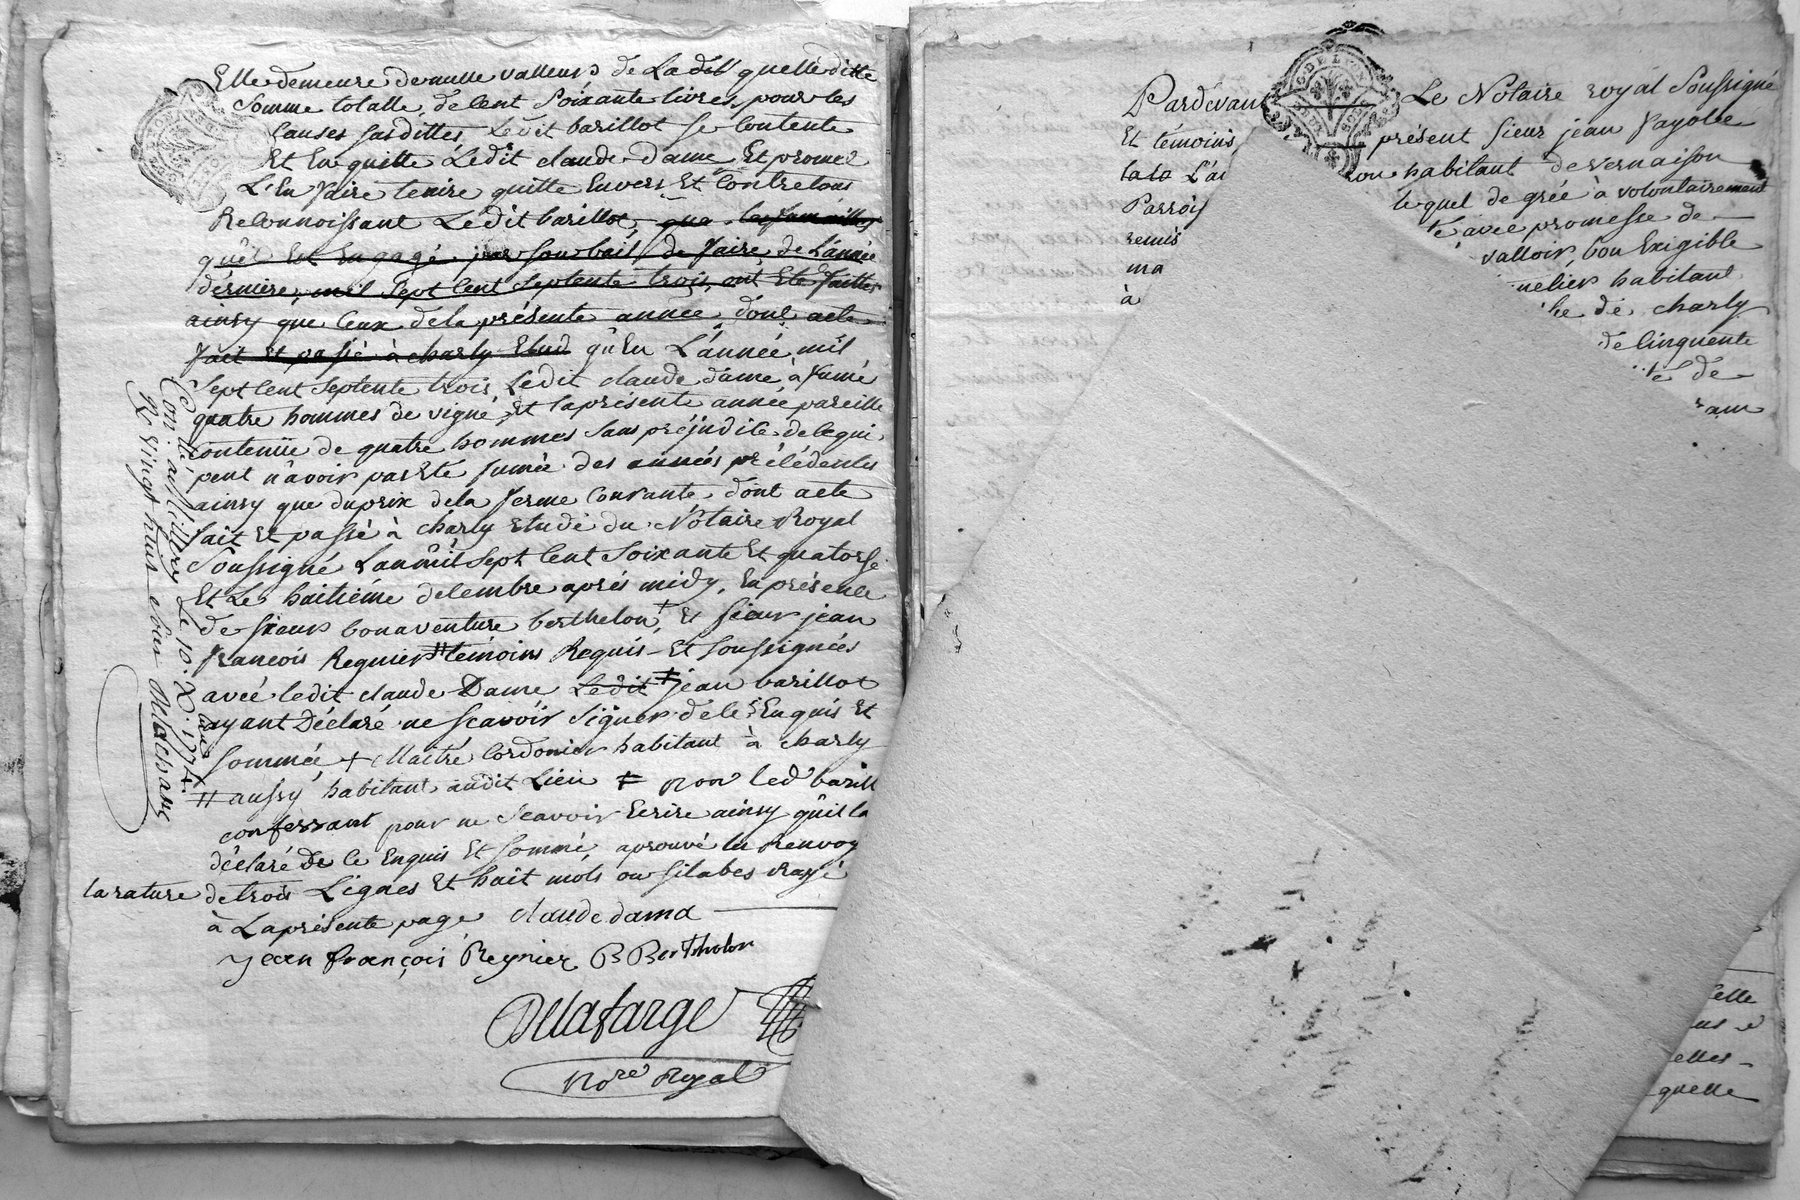 Elle demeure de nulle valleur de La quelle ditte
Somme totalle de Cent Soixante livres, pour les
Causes susdittes Ledit barillot se Contente
Et En quitte Ledit claude Dame Et promet
L'En faire tenire quitte Envers Et Contre tous
Reconnoissant Ledit barillot, que les
qu'il Est Engagé par son bail de faire de L'année
dernière, mil Sept Cent Septente trois, ont Eté faittes
ainsy que Ceux de la présente année, dont acte
fait Et passé à charly Etud qu'En L'année mil
Sept Cent Septente trois, Ledit claude dame, à fumé
quatre hommes de vigne, Et la présente année pareille
contenüe de quatre hommes Sans préjudice de ce qui
peut n'avoir pas Eté fumée des années précédentes
ainsy que du prix de la ferme Courante, dont acte
fait Et passé à charly Etude du Nôtaire Royal
Soussigné L'an mil Sept Cent Soixante Et quatorse
Et Le huitiéme décembre après midy, En présence
de sieur bonaventure berthelon + Et sieur jean
françois Regnier # témoins Requis Et soussignées
avec ledit claude Dame Ledit ‡ jean barillot
ayant Déclaré ne scavoir Signer de ce Enquis Et
Sommée + Maitre Cordonier habitant à charly
# aussy habitant audit Lieu ‡ non led barill
confessant pour ne Scavoir Ecrire ainsy qu'il la
déclaré de Ce Enquis Et Sommé, aprouvé les Renvoy
la rature de trois Lignes Et huit mots ou silabes rayé
à La présente page claude dama
jean françois Regnier B Bertholon
Delafarge
Nore Royal
Con lé à Le 10 Xbre 1774.
R vingt huit
Pardevant Le Nôtaire royal Soussigné
Et témoins, présent sieur jean fayolle
habitant de vernaison
lequel de grée à volontairement
Parrois
remis té avec promesse de
ma valloir, bon Exigible
à nelier habitant
de charly
de Cinquente
té de
elles
quelle